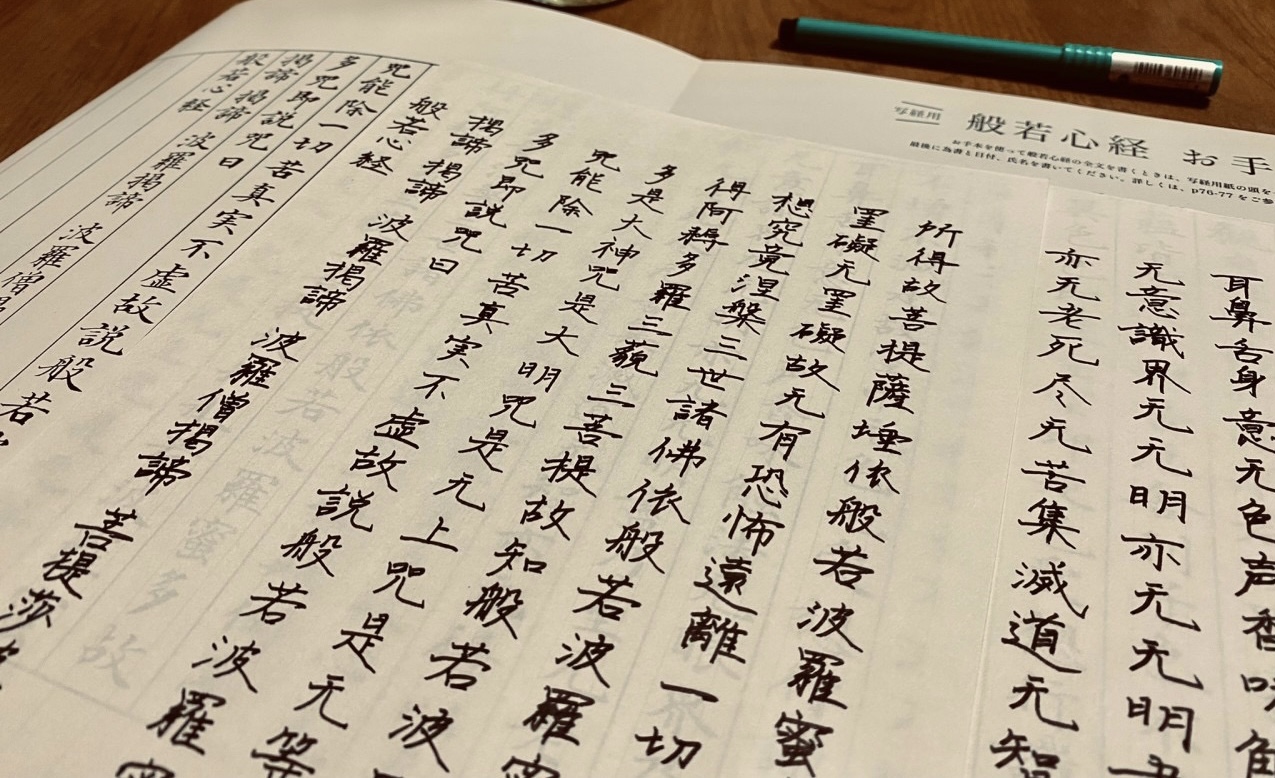 写経用
般若心経 お手
お手本を使って般若心経の全文を書くときは、写経用紙の頭を
最後に為書と日付、氏名を書いてください。詳しくは、p76-77をご参
耳鼻舌身意无色声香味
无意識界无无明亦无无明
亦无老死尽无苦集滅道无知
所得故菩提薩埵依般若波羅蜜
罣礙无罣礙故无有恐怖遠離一切
想究竟涅槃三世諸佛依般若波羅蜜
得阿耨多羅三藐三菩提故知般若波
多是大神咒是大明咒是无上咒是无等
咒能除一切苦真実不虚故説般若波羅蜜
多咒即説咒曰
揭諦揭諦 波羅揭諦 波羅僧揭諦 菩提莎
般若心経
咒能除一切苦真実不虚故説般若
多咒即説咒曰
揭諦揭諦 波羅揭諦 波羅僧
般若心経